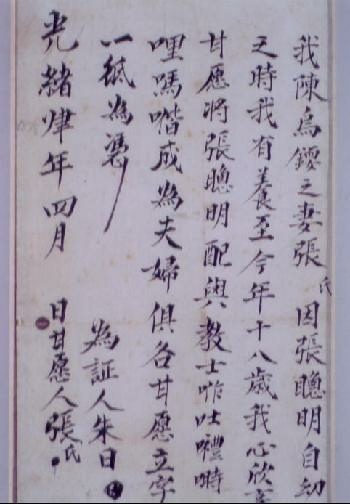 我陳烏鏍之妻張氏因張聰明自幼
之時我有養至今年十八歲我心欣
甘愿將張聰明配與教士咋吐
哩嗎喈成為夫婦俱各甘愿立字
一紙為憑
為証人朱日
光緒肆年四月 日甘愿人張氏